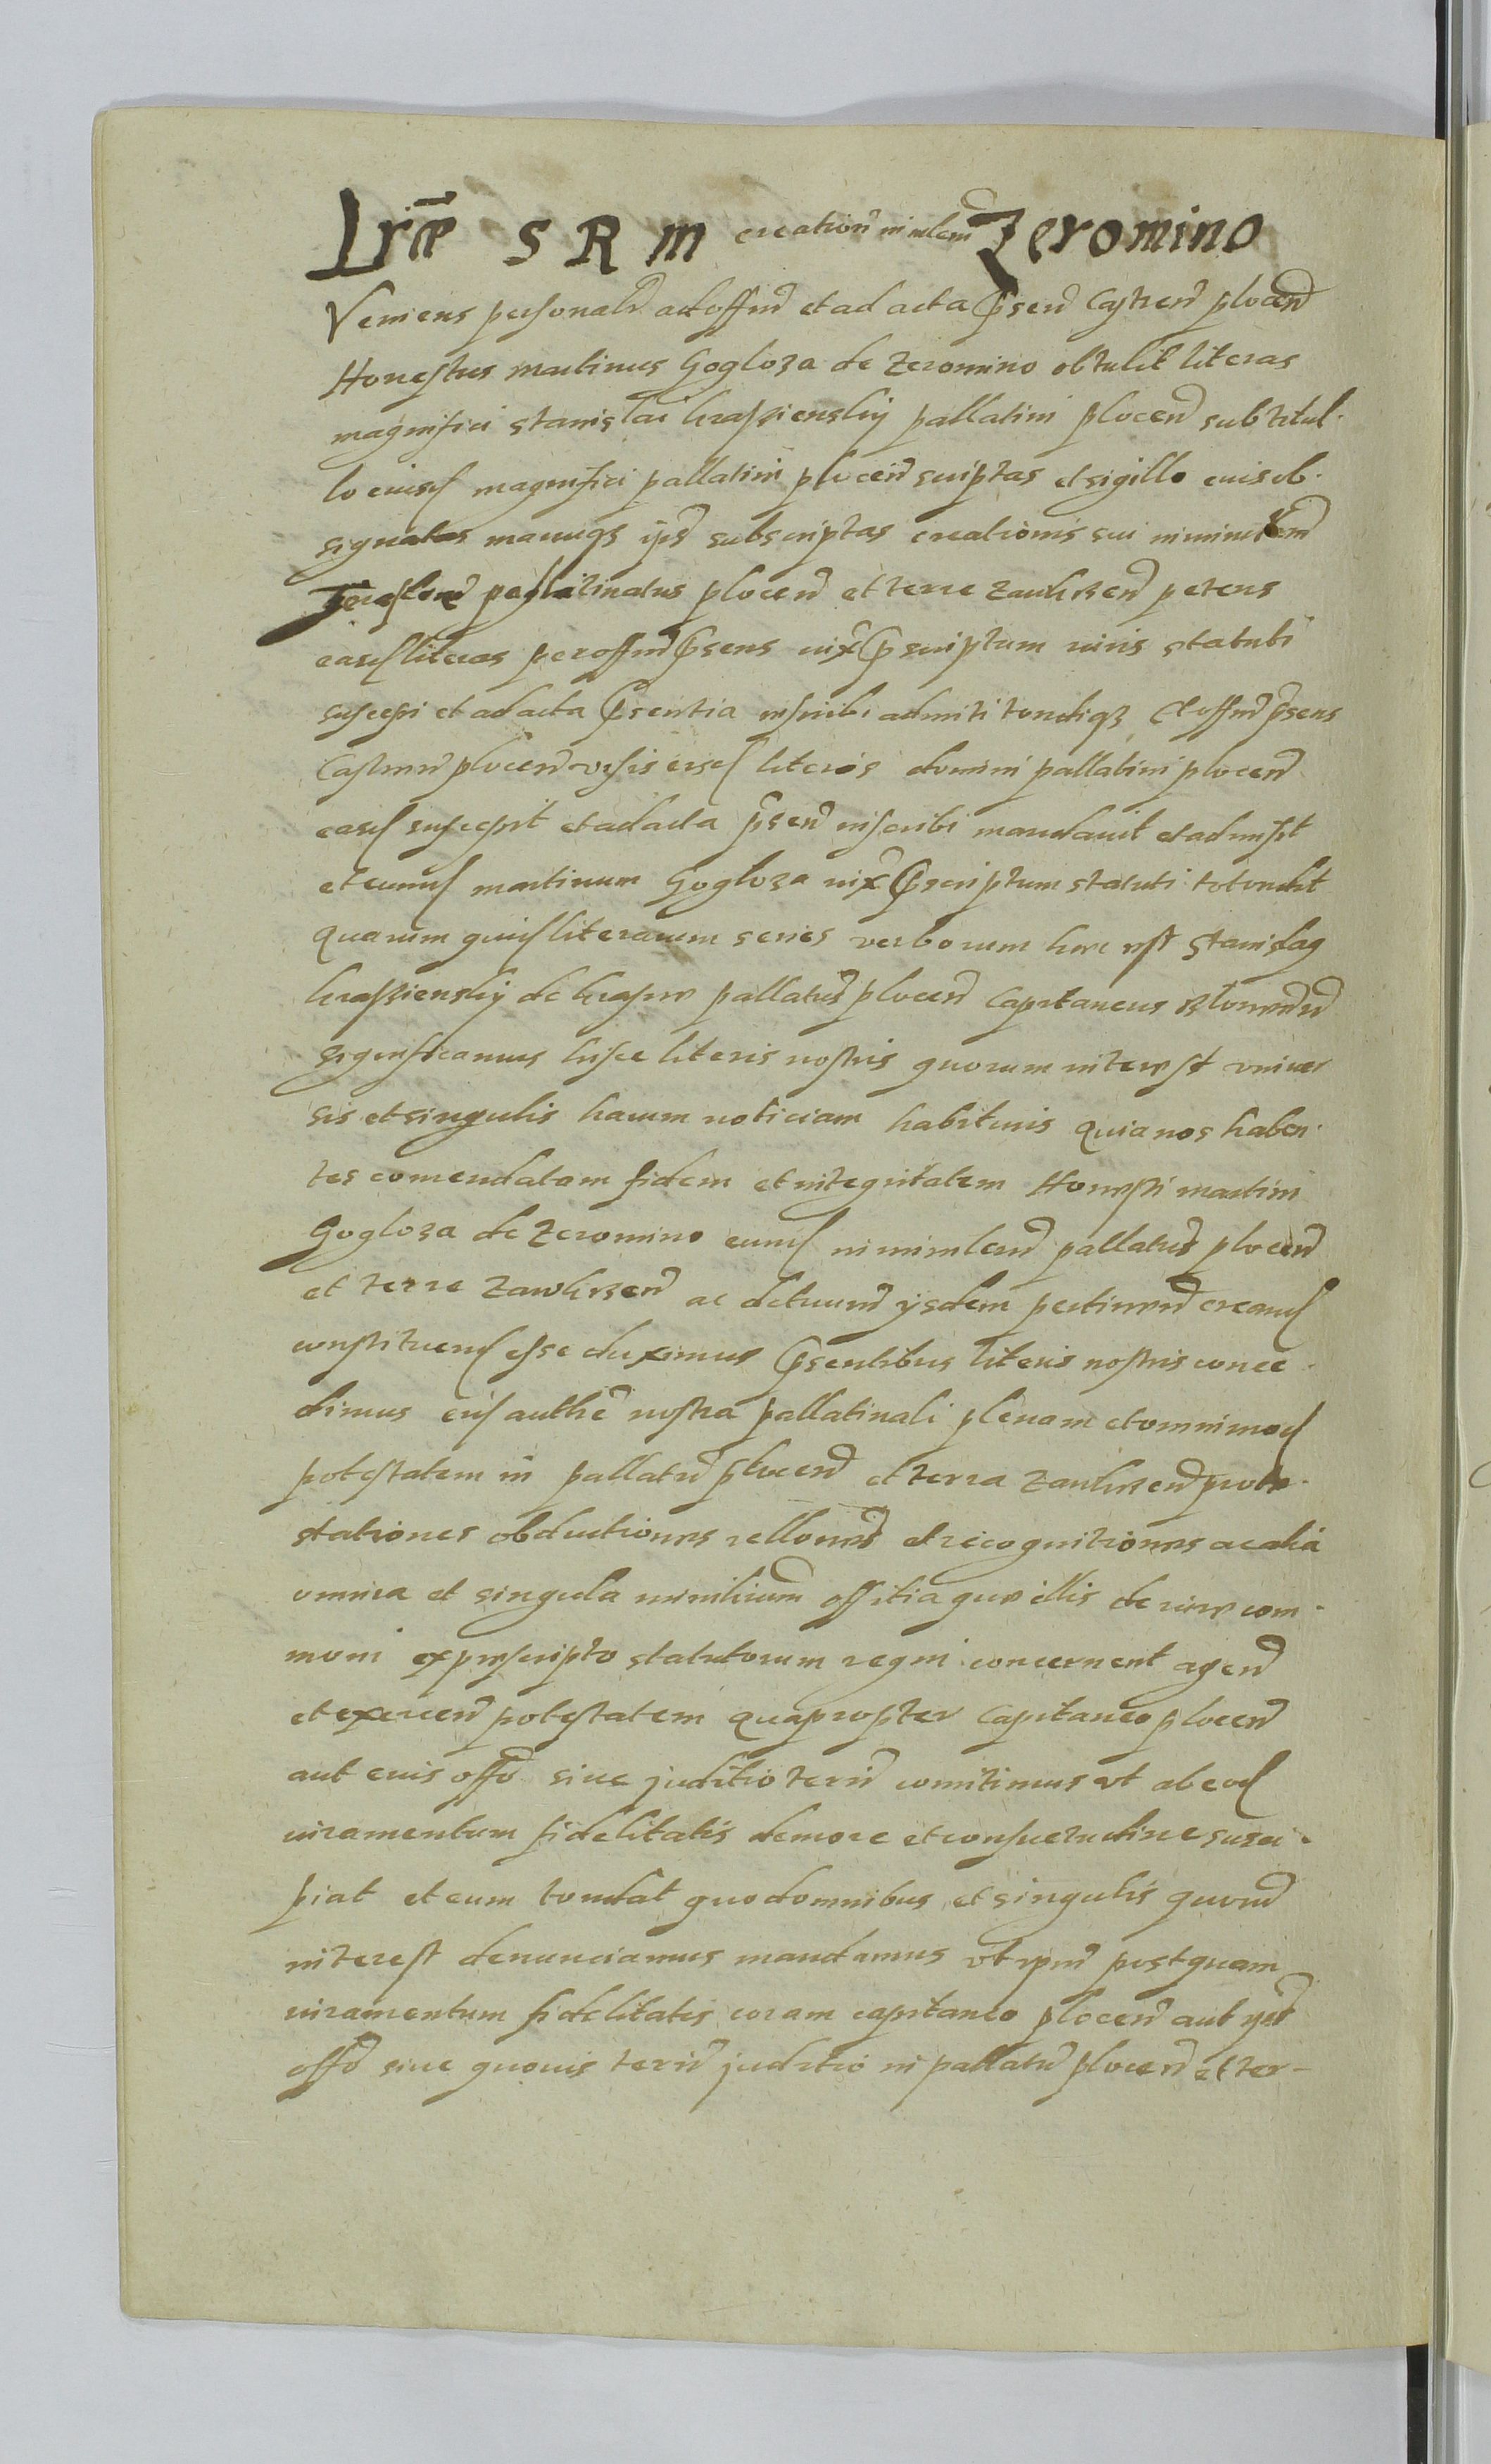 Lrae S R M creation in mlem Zeromino
Veniens personalr ad offm et ad acta psen Castren plocen
Honestus martinus Gogloza de Zeromino obtulit literas
magnifici stanislai krassienskij pallatini plocen sub titul-
lo eiusd magnifici pallatini plocen scriptas et sigillo eius ob-
signatas manuqz ips subscriptas creationis sui in ministem
pallatinatus plocen et terre zawkrzen petens
easd literas per offm psens iux pscriptum iuris statuti
suscepi et ad acta psentia inscribi admiti tondiqz Et offm psens
Castrense plocen visis eisd literis domini pallatini plocen
easd suscepit et ad acta psen inscribi mandauit et admisit
et eumd martinum Gogloza iux pscriptum statuti totondit
Quarum quid literarum series verborum hec est Stanislaq
krassienskij de krasne pallatin plocen Capitaneus
significamus hisce literis nostris quorum interest vniuer
sis et singulis harum noticiam habituris Quia nos haben-
tes comendatam fidem et integritatem Honesti martini
Gogloza de Zeromino eumd in mimlem pallatus plocen
et terre zawkrzen ac ysdem pertinen creand
constituend esse duximus psentibus literis nostris conce-
dimus eid authe nostra pallatinali plenam et omnimod
potestatem in pallatu plocen et terra zawkrzen prote-
stationes obductiones rellones et recognitiones ac alia
omnia et singula mimlium offitia que illis de iure com-
muni ex prescripto statutorum regni concernent agen
et exercen potestatem Quapropter Capitaneo plocen
aut eius offo siue juditio terri comitimus vt ab eod
iuramentum fidelitatis de more et consuetudine susci-
piat et eum tondat quod omnibus et singulis quorum
interest denunciamus mandamus vt ipm postquam
iuramentum fidelitatis coram capitaneo plocen aut ips
offo siue quouis terri juditio in pallatu plocen et ter-